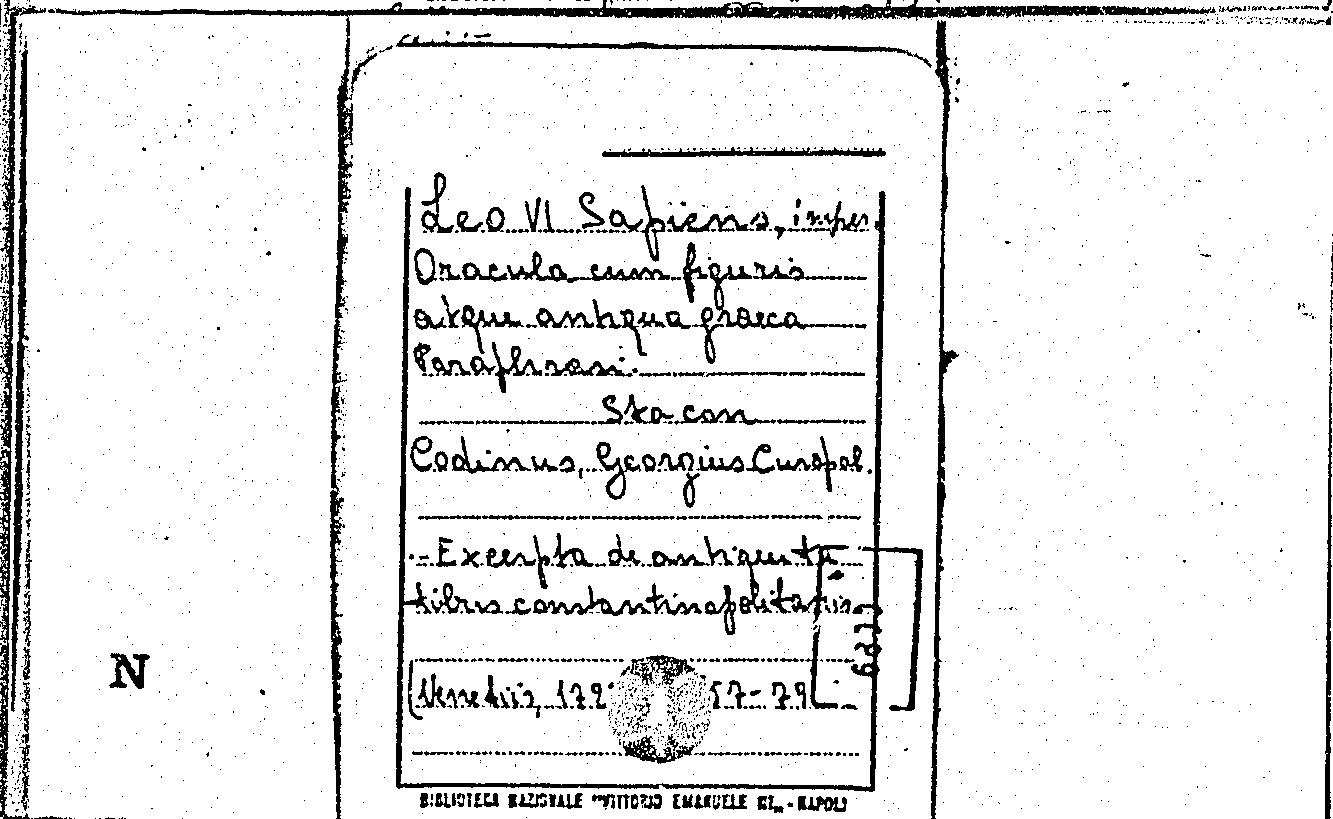 Leo VI Sapiens, imper.
Oracula cum figuris
atque antiqua graeca
Paraphrasi.
Sta con
Codinus, Georgius Curopal.
- Excerpta de antiquita
tibus constantinopolitanis
(Venetiis, 172 57-79
N
BIBLIOTECA NAZIONALE "VITTORIO EMANUELE III" - NAPOLI